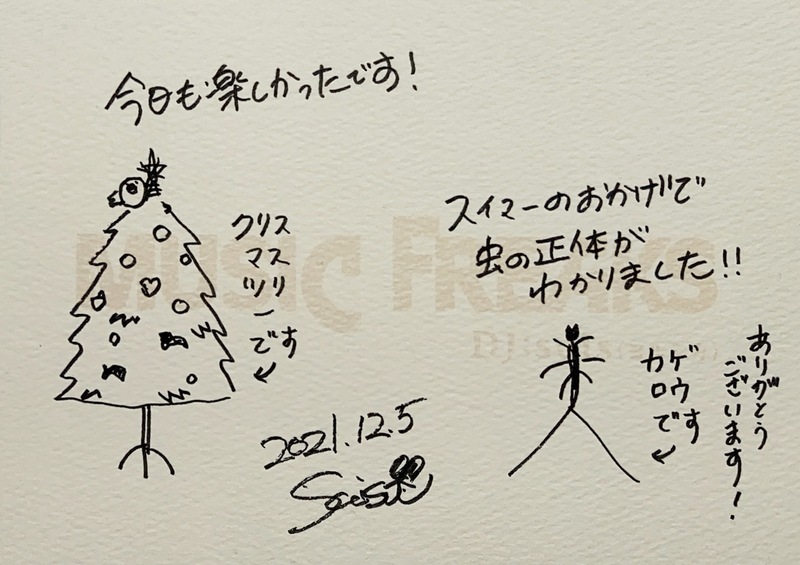 今日も楽しかったです!
クリス
マス
ツリ
ーです
スイマーのおかげで
虫の正体が
わかりました!!
カゲ
ロウ
です
ありがとう
ございます!
2021.12.5
MUSIC FREAKS